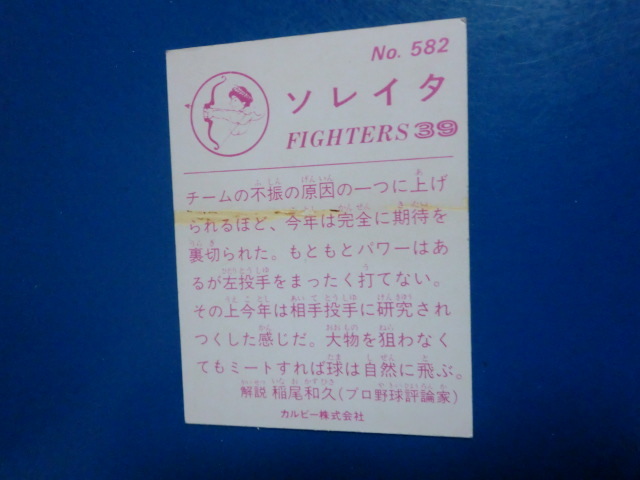 No. 582
ソレイタ
FIGHTERS 39
チームの不振の原因の一つに上げ
られるほど、今年は完全に期待を
裏切られた。もともとパワーはあ
るが左投手をまったく打てない。
その上今年は相手投手に研究され
つくした感じだ。大物を狙わなく
てもミートすれば球は自然に飛ぶ。
解説 稲尾和久(プロ野球評論家)
カルビー株式会社